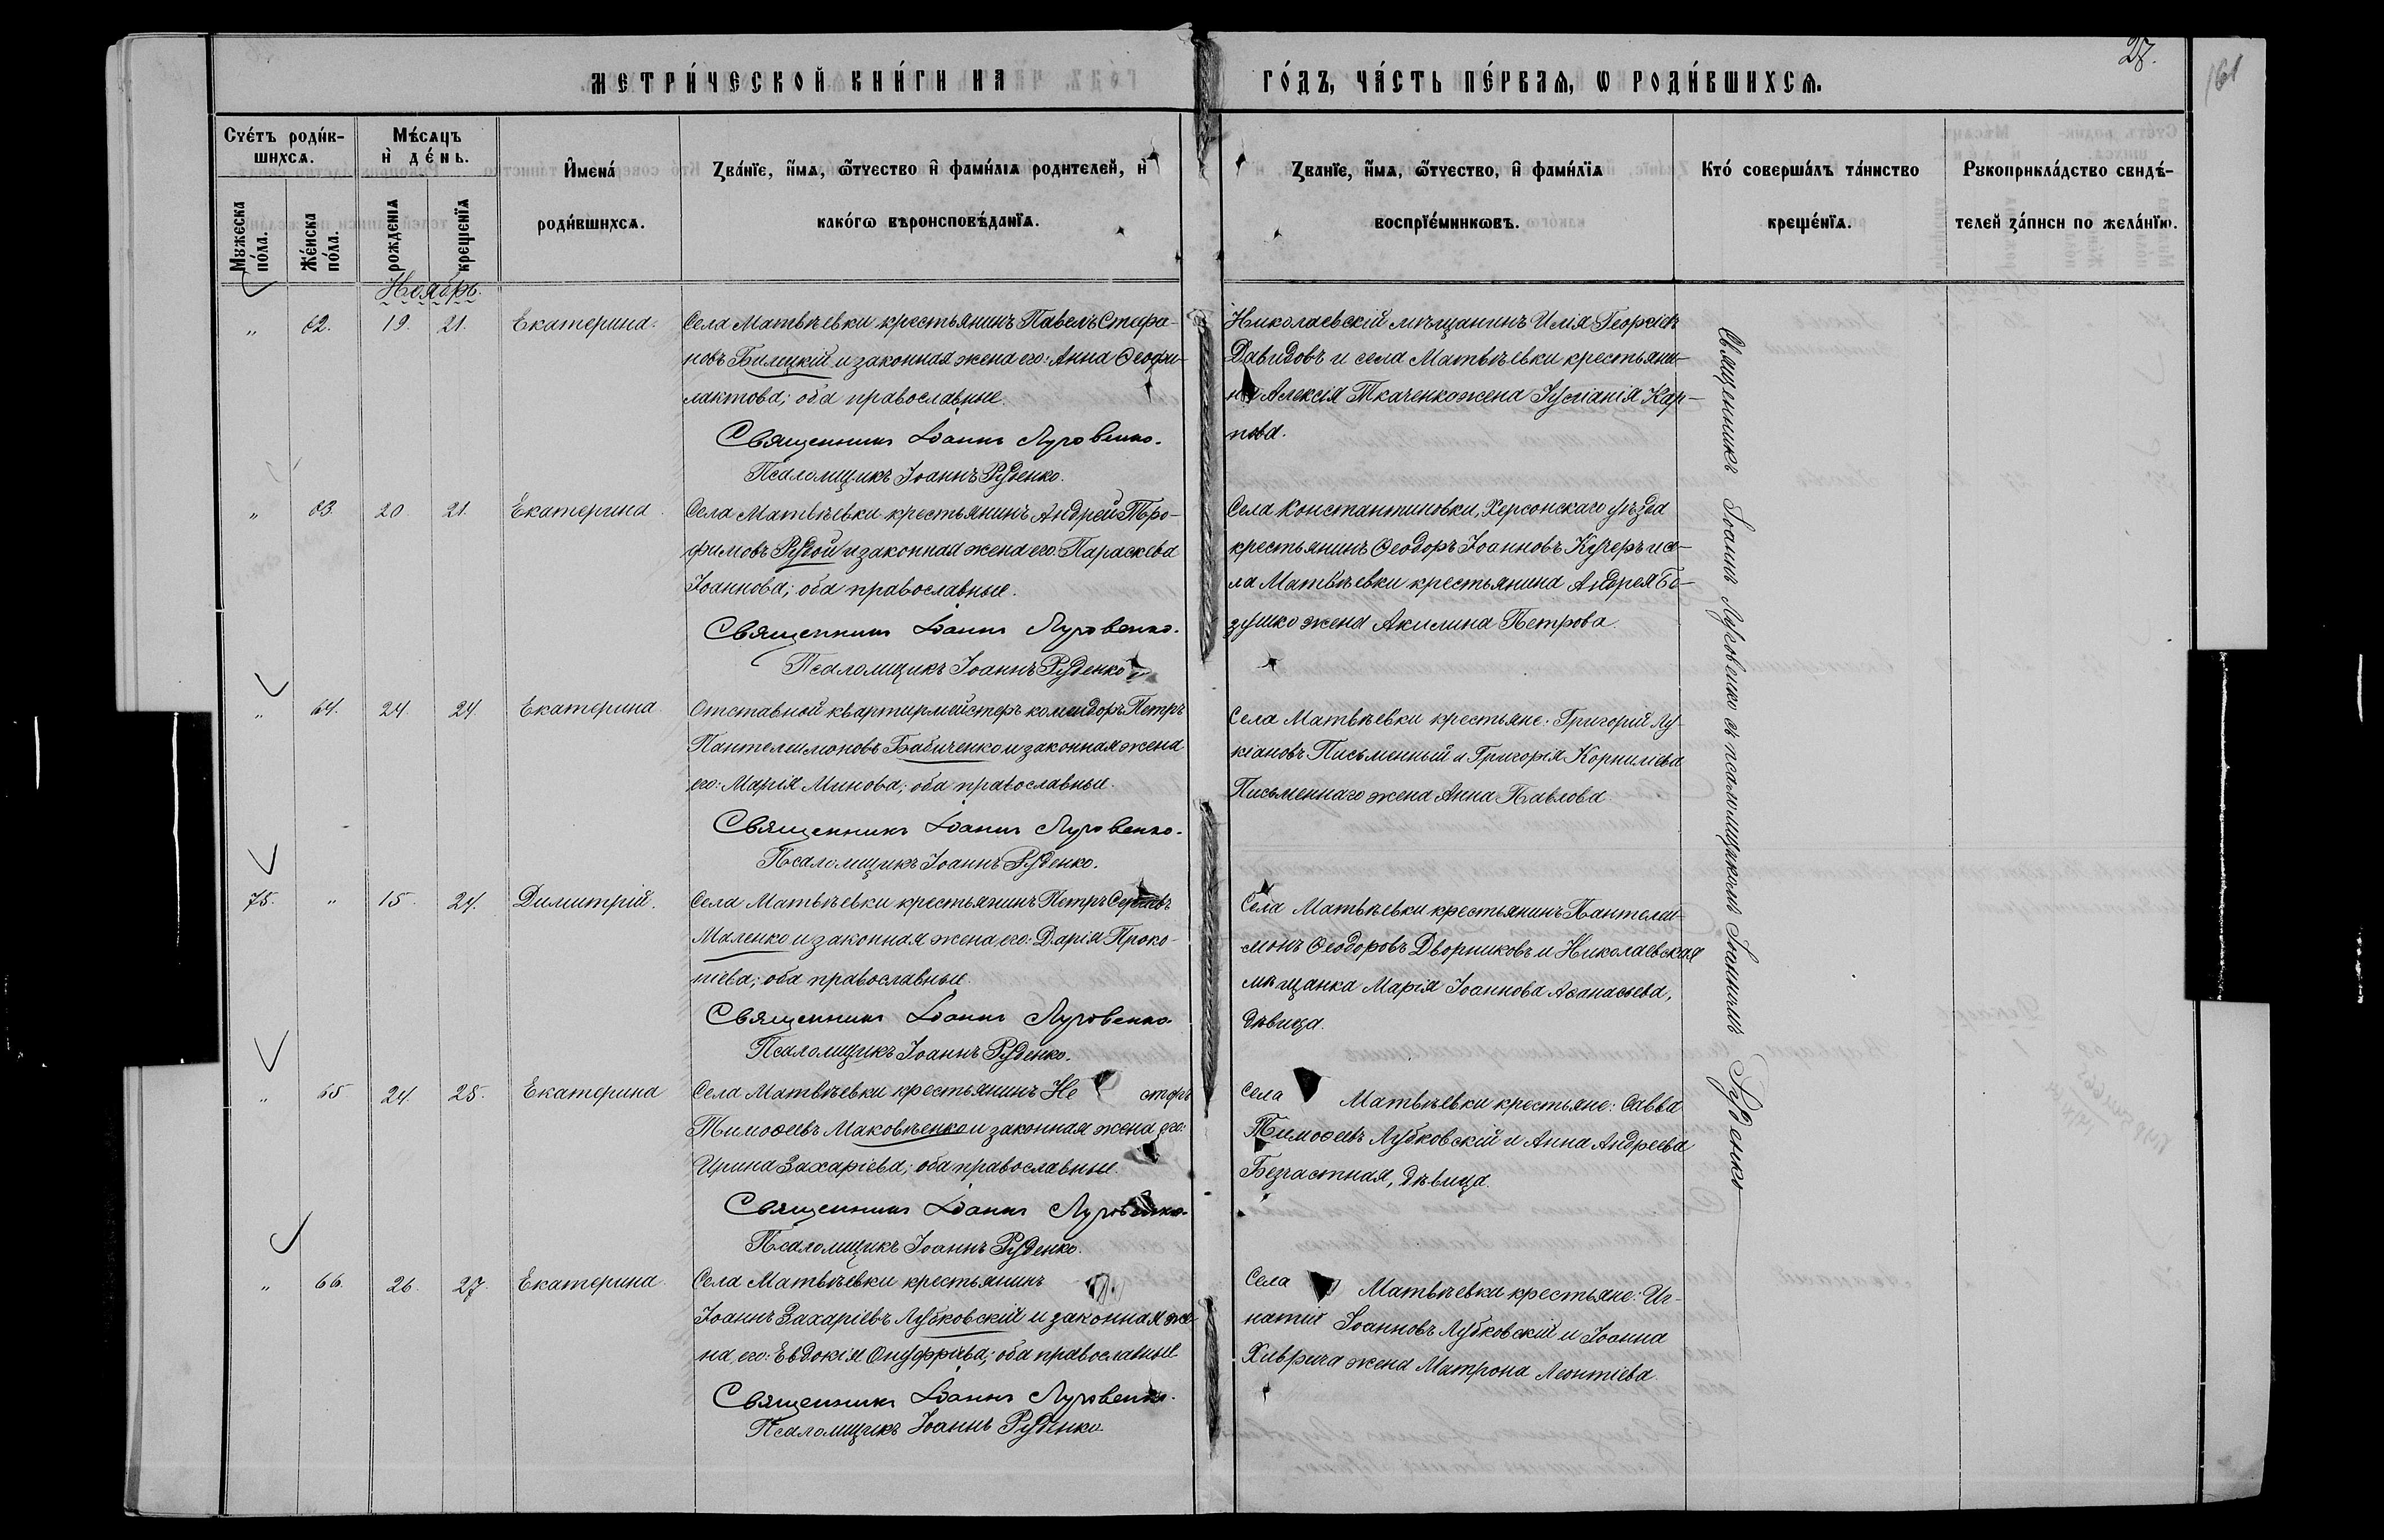 28.
161
МЕТРИ́ЧЕСКОЙ КНИ́ГИ НА ГО́ДЪ, ЧА́СТЬ ПЕ́РВАѦ, Ѡ РОДИ́ВШИХСѦ.
Счетъ роди́в-
шихсѧ.
Мужеска по́ла.
Же́нска по́ла.
Мѣ́сѧцъ
и҆ де́нь.
рожденїѧ
крещенїѧ
И҆мена́
роди́вшихсѧ.
Зва́нїе, и҆́мѧ, ѻ҆́тчество и҆ фами́лїѧ родителей, и҆
како́гѡ вѣроисповѣ́данїѧ.
Званїе, и҆́мѧ, ѻ҆́тчество, и҆ фами́лїѧ
воспрїе́мникѡвъ.
Кто́ соверша́лъ та́инство
креще́нїѧ.
Рукоприкла́дство свидѣ́-
телей за́писи по жела́нїю.
Ноябрь.
„ 62. 19. 21. Екатерина.
Села Матвѣевки крестьянинъ Павелъ Стефа-
новъ Билецкій и законная жена его: Анна Ѳеофи-
лактова; оба православные.
Священникъ Іоаннъ Луговенко.
Псаломщикъ Іоаннъ Руденко.
Николаевскій мѣщанинъ Илія Георгіев
Давидовъ и села Матвѣевки крестьяни-
на Алексія Ткаченко жена Іуліанія Кар-
пова.
Священникъ Іоаннъ Луговенко съ псаломщикомъ Іоанномъ Руденко
„ 63. 20. 21. Екатерина.
Села Матвѣевки крестьянинъ Андрей Тро-
фимовъ Рудой и законная жена его: Параскева
Іоаннова; оба православные.
Священникъ Іоаннъ Луговенко.
Псаломщикъ Іоаннъ Руденко
Села Константиновки, Херсонскаго уѣзда
крестьянинъ Ѳеодоръ Іоанновъ Кучеръ и се-
ла Матвѣевки крестьянина Андрея Бо-
зушко жена Акилина Петрова.
„ 64. 24. 24. Екатерина.
Отставной квартирмейстеръ командоръ Петръ
Пантелимоновъ Бабиченко и законная жена
его: Марія Минова; оба православные.
Священникъ Іоаннъ Луговенко.
Псаломщикъ Іоаннъ Руденко.
Села Матвѣевки крестьяне: Григорій Лу-
кіановъ Письменный и Григорія Корниліева
Письменнаго жена Анна Павлова.
75. „ 15. 24. Димитрій.
Села Матвѣевки крестьянинъ Петръ
Маленко и законная жена его: Дарія Проко-
піева; оба православные.
Священникъ Іоаннъ Луговенко.
Псаломщикъ Іоаннъ Руденко.
Села Матвѣевки крестьянинъ Пантелеи-
монъ Ѳеодоровъ Дворниковъ и Николаевская
мѣщанка Марія Іоаннова Аѳанасьева,
дѣвица.
„ 65 24. 25. Екатерина
Села Матвѣевки крестьянинъ Не сторъ
Тимоѳеевъ Маковѣенко и законная жена его:
Ирина Захаріева; оба православные.
Священникъ Іоаннъ Луговенко.
Псаломщикъ Іоаннъ Руденко.
Села Матвѣевки крестьяне: Савва
Тимоѳеевъ Лубковскій и Анна Андреева
Безчастная, дѣвица.
„ 66. 26. 27. Екатерина.
Села Матвѣевки крестьянинъ
Іоаннъ Захаріевъ Лубковскій и законная же-
на его: Евдокія Онуфріева; оба православные
Священникъ Іоаннъ Луговенко.
Псаломщикъ Іоаннъ Руденко
Села Матвѣевки крестьяне: Иг-
натій Іоанновъ Лубковскій и Іоанна
Хиврича жена Матрона Леонтіева.